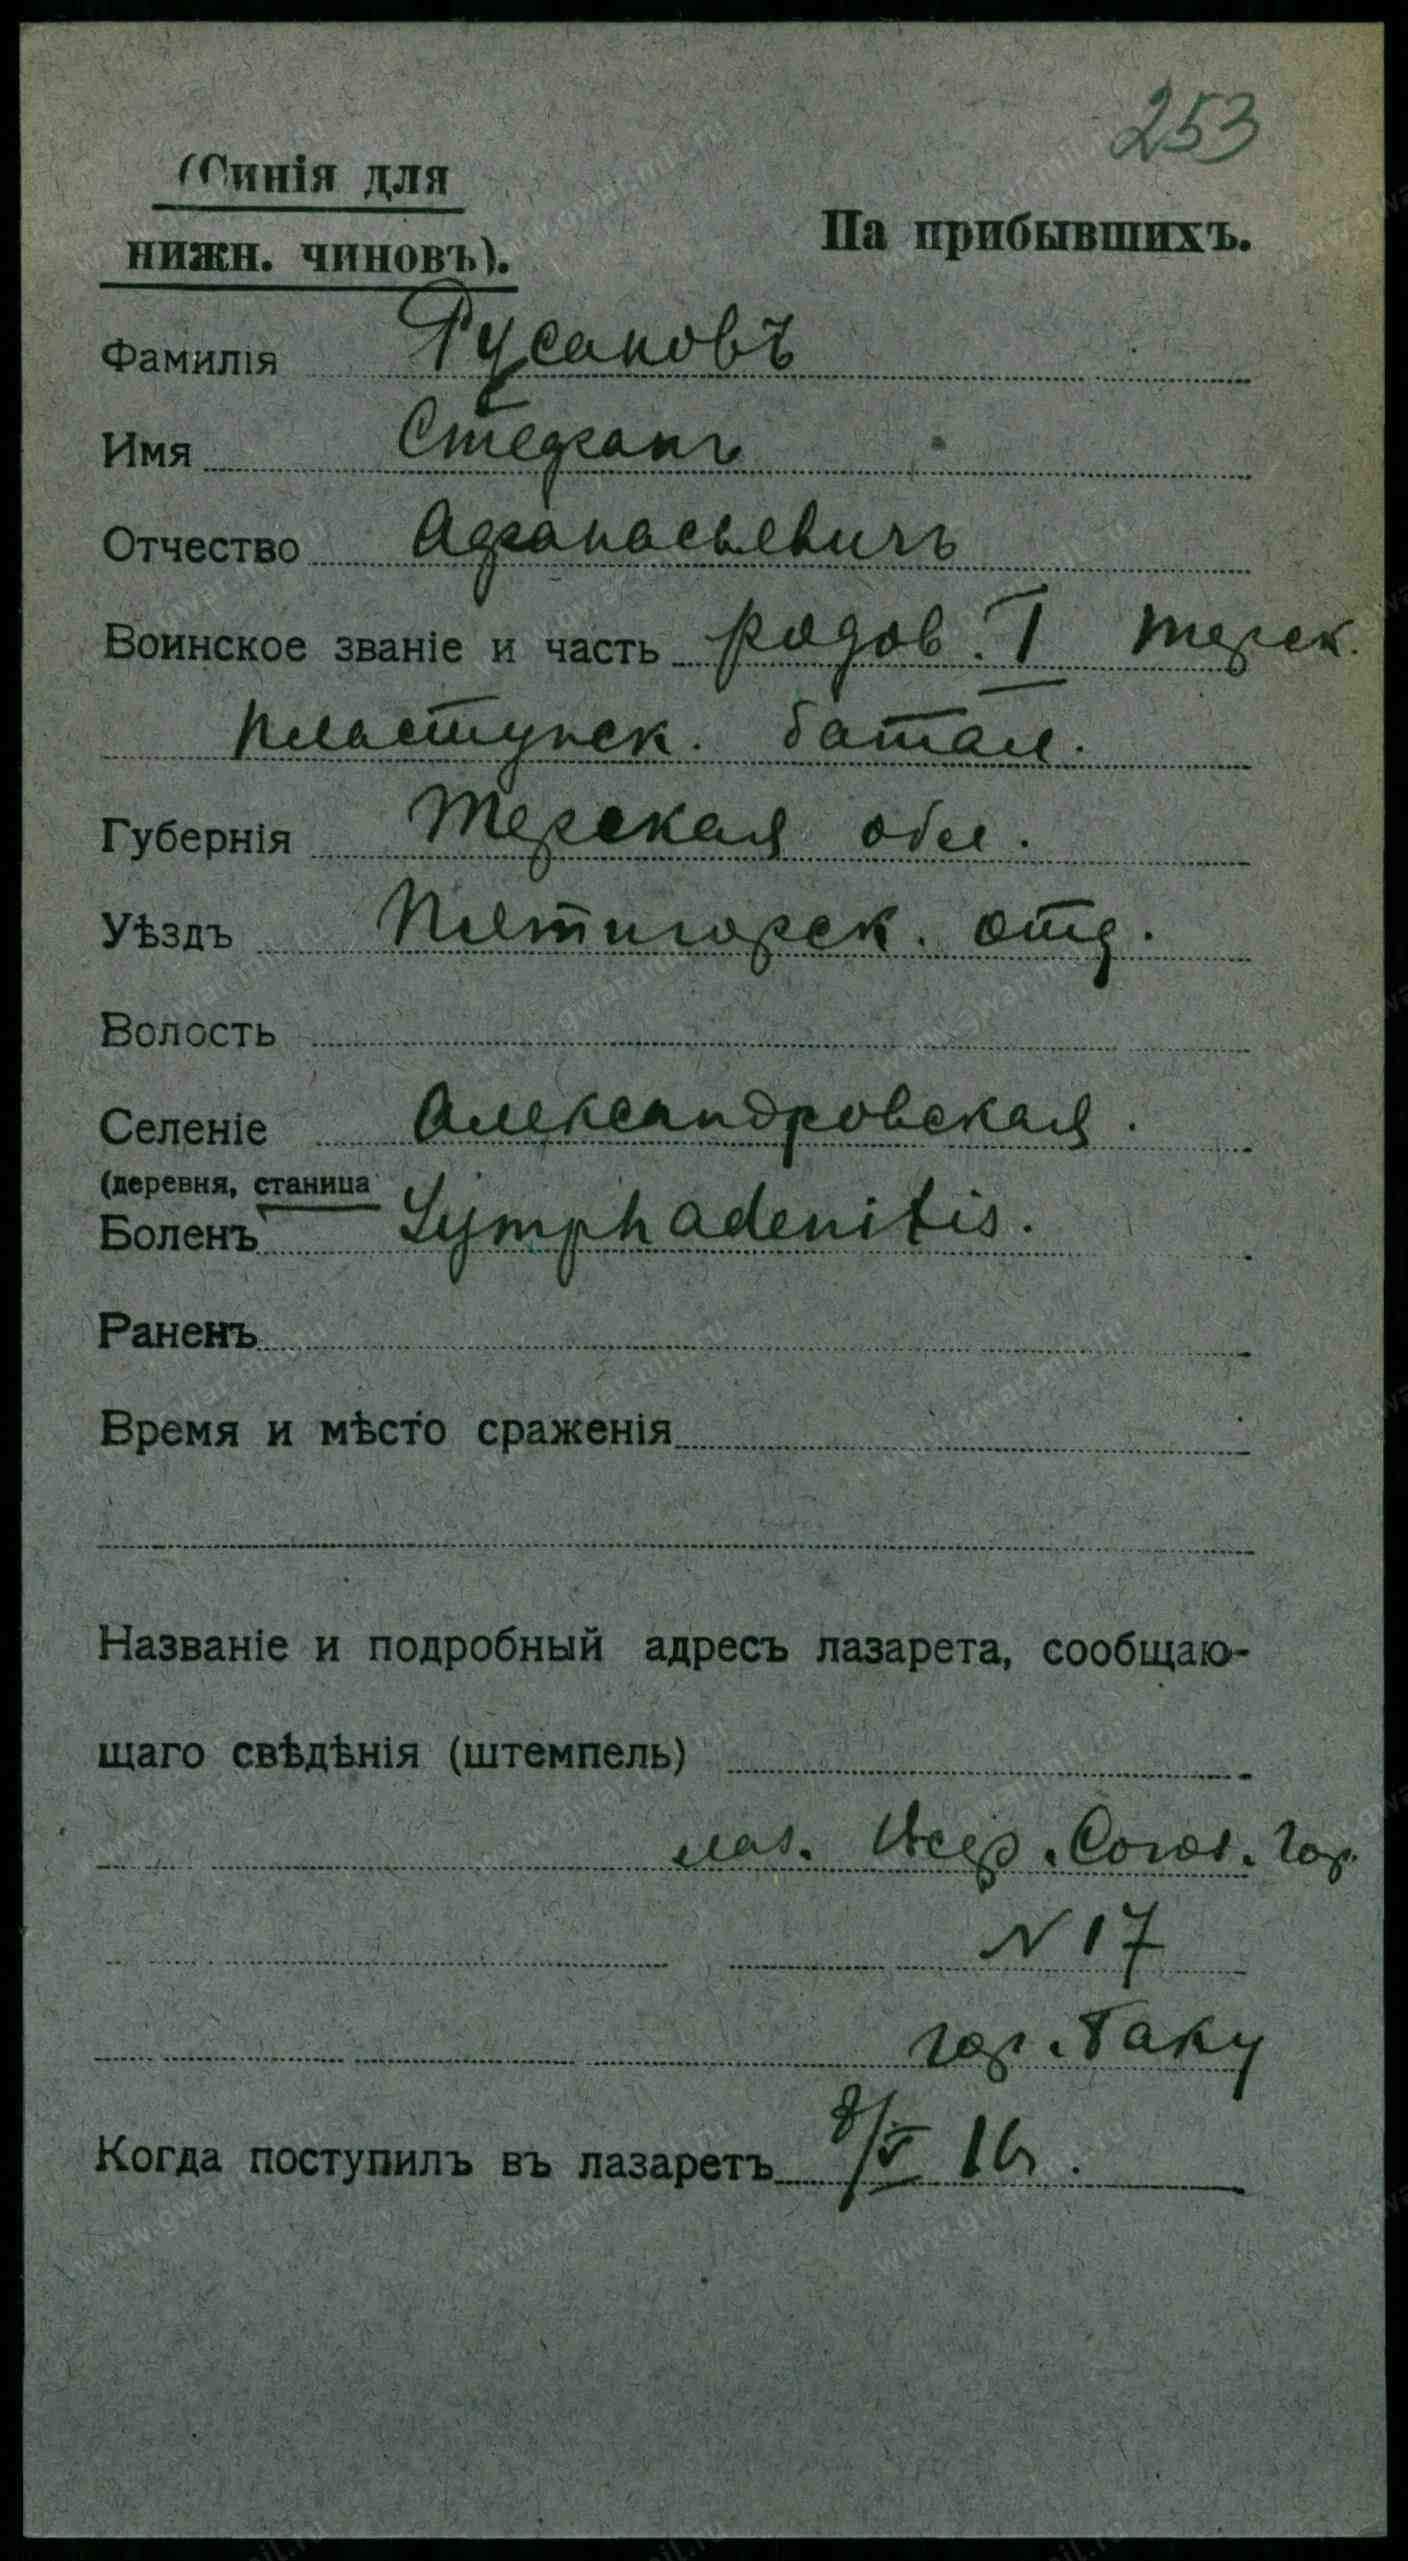 253
(Синія для
нижн. чиновъ).
На прибывшихъ.
Фамилія Русановъ
Имя Стефанъ
Отчество Афанасьевичъ
Воинское званіе и часть рядов. I терск.
пластунск. батал.
Губернія Терская обл.
Уѣздъ Пятигорск. отд.
Волость
Селеніе Александровская.
(деревня, станица
Боленъ Lymphadenitis.
Раненъ
Время и мѣсто сраженія
Названіе и подробный адресъ лазарета, сообщаю-
щаго свѣдѣнія (штемпель)
лаз. Всер. Союз. Гор.
N 17
гор. Баку
Когда поступилъ въ лазаретъ 8/V 16.